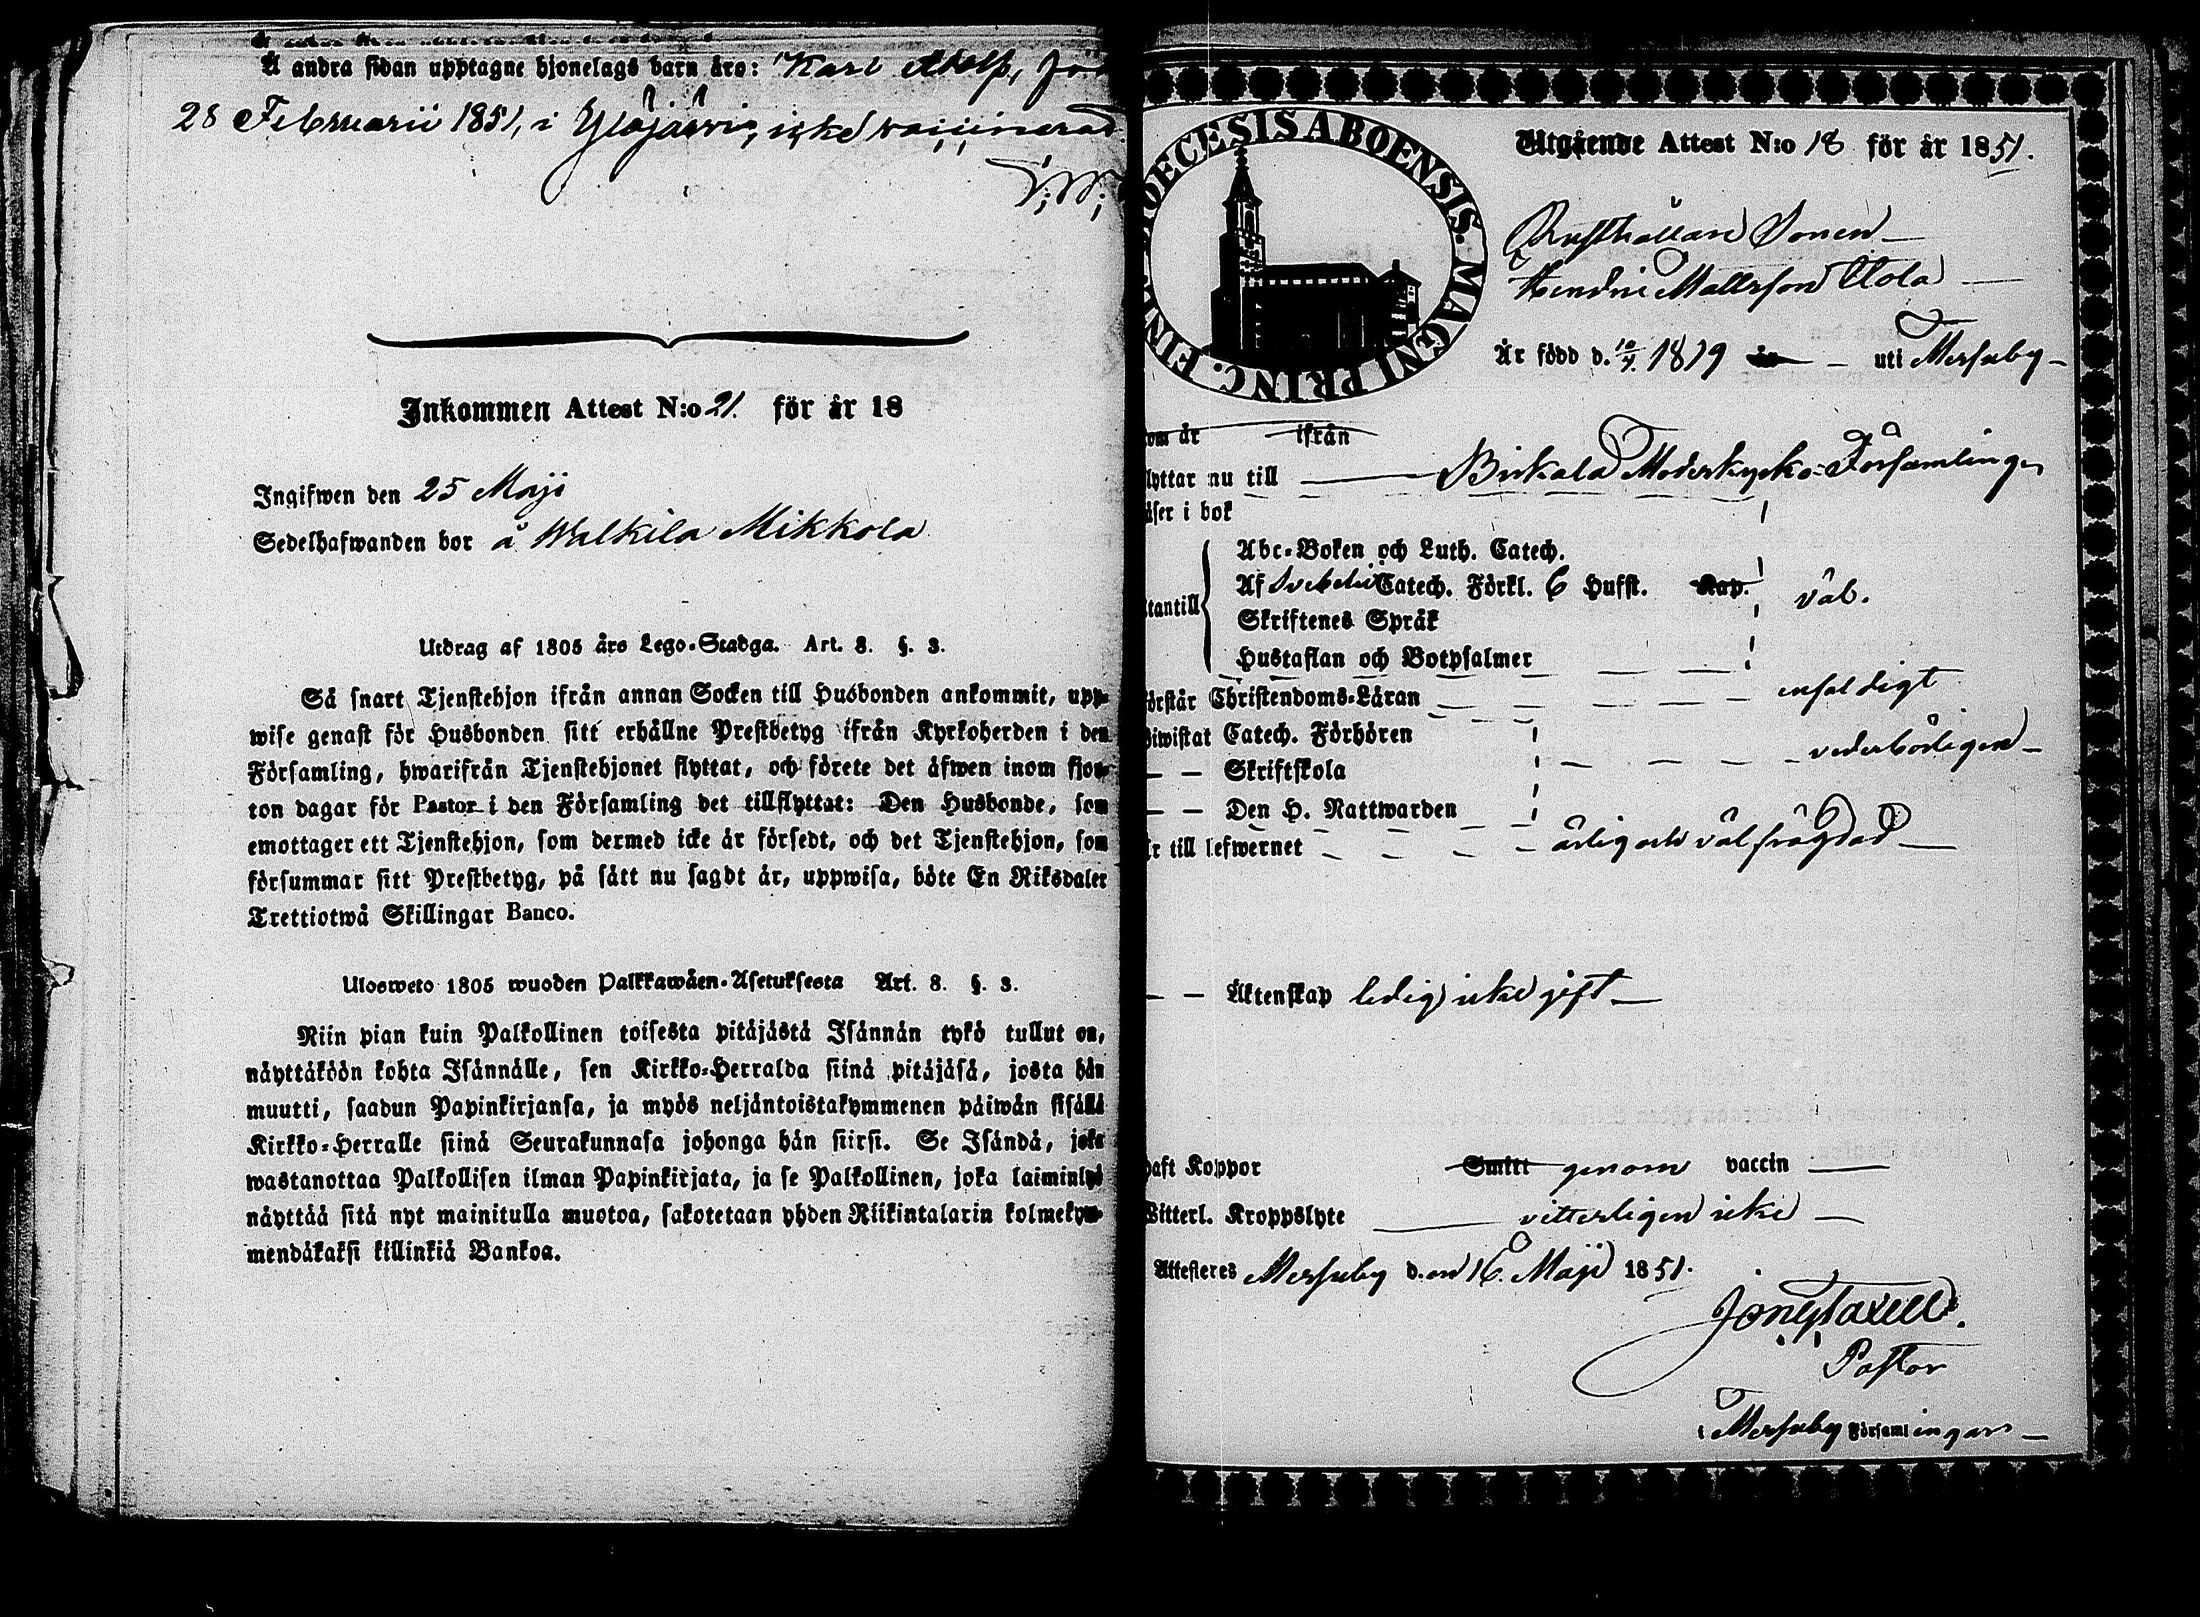 Å andra sidan upptagne hjonelags barn äro: Karl Adolf,
28 Februarii 1851, i Ylöjärvi, icke vaccinerad

Inkommen Attest N:o 21. för år 18
Ingifwen den 25 Maji
Sedelhafwanden bor å Walkila Mikkola
Utdrag af 1805 års Lego-Stadga. Art. 8. §. 3.
Så snart Tjenstehjon ifrån annan Socken till Husbonden ankommit, upp-
wise genast för Husbonden sitt erhållne Prestbetyg ifrån Kyrkoherden i den
Församling, hwarifrån Tjenstehjonet flyttat, och förete det äfwen inom fjor-
ton dagar för Pastor i den Församling det tillflyttat: Den Husbonde, som
emottager ett Tjenstehjon, som dermed icke är försedt, och det Tjenstehjon, som
försummar sitt Prestbetyg, på sätt nu sagdt är, uppwisa, böte En Riksdaler
Trettiotwå Skillingar Banco.
Ulosweto 1805 wuoden Palkkawäen-Asetuksesta Art. 8. §. 3.
Niin pian kuin Palkollinen toisesta pitäjästä Isännän tykö tullut on,
näyttäköön kohta Isännälle, sen Kirkko-Herralda siinä pitäjäsä, josta hän
muutti, saadun Papinkirjansa, ja myös neljäntoistakymmenen päiwän sisällä
Kirkko-Herralle siinä Seurakunnasa johonga hän siirsi. Se Isändä, joka
wastanottaa Palkollisen ilman Papinkirjata, ja se Palkollinen, joka laiminlyö
näyttää sitä nyt mainitulla muotoa, sakotetaan yhden Riikintalarin kolmekym-
mendäkaksi killinkiä Bankoa.

DIOECESIS ABOENSIS. MAGNI PRINC. FINL.
Utgående Attest N:o 18 för år 1851.
Rusthållare Sonen
Hendric Mattsson Uola
Är född d. 10/4. 1819 uti Messuby
som är ifrån
flyttar nu till Birkala Moderkyrko-Församling
läser i bok
utantill
Abc-Boken och Luth. Catech.
Af Svebelii Catech. Förkl. 6 Hufst. Kap. väl.
Skriftenes Språk
Hustaflan och Botpsalmer
förstår Christendoms-Läran enfaldigt
biwistat Catech. Förhören
— — Skriftskola vederbörligen
— — Den H. Nattwarden
är till lefwernet ärlig och välfrägdad
— — Äktenskap ledig icke gift
haft Koppor Smitt genom vaccin
Witterl. Kroppslyte vitterligen icke
Attesteres Messuby den 16. Maji 1851.
Pastor
i Messuby Församlingar